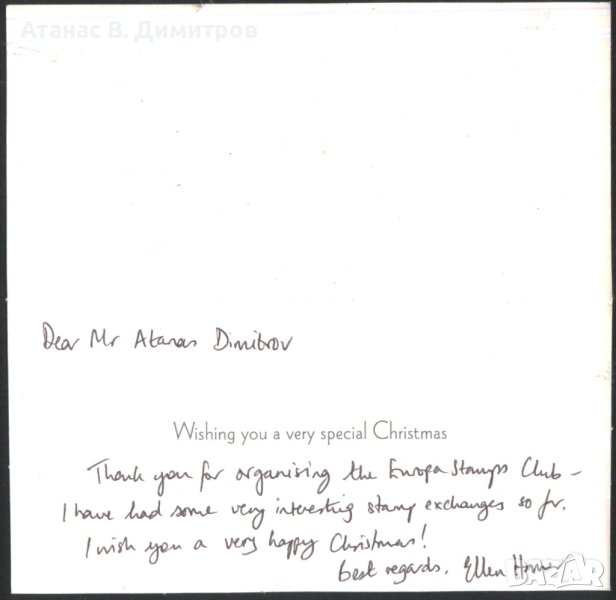 Атанас В. Димитров
Dear Mr Atanas Dimitrov
Wishing you a very special Christmas
Thank you for organising the Europa Stamps Club –
I have had some very interesting stamp exchanges so far.
I wish you a very happy Christmas!
best regards, Ellen
BAZAR